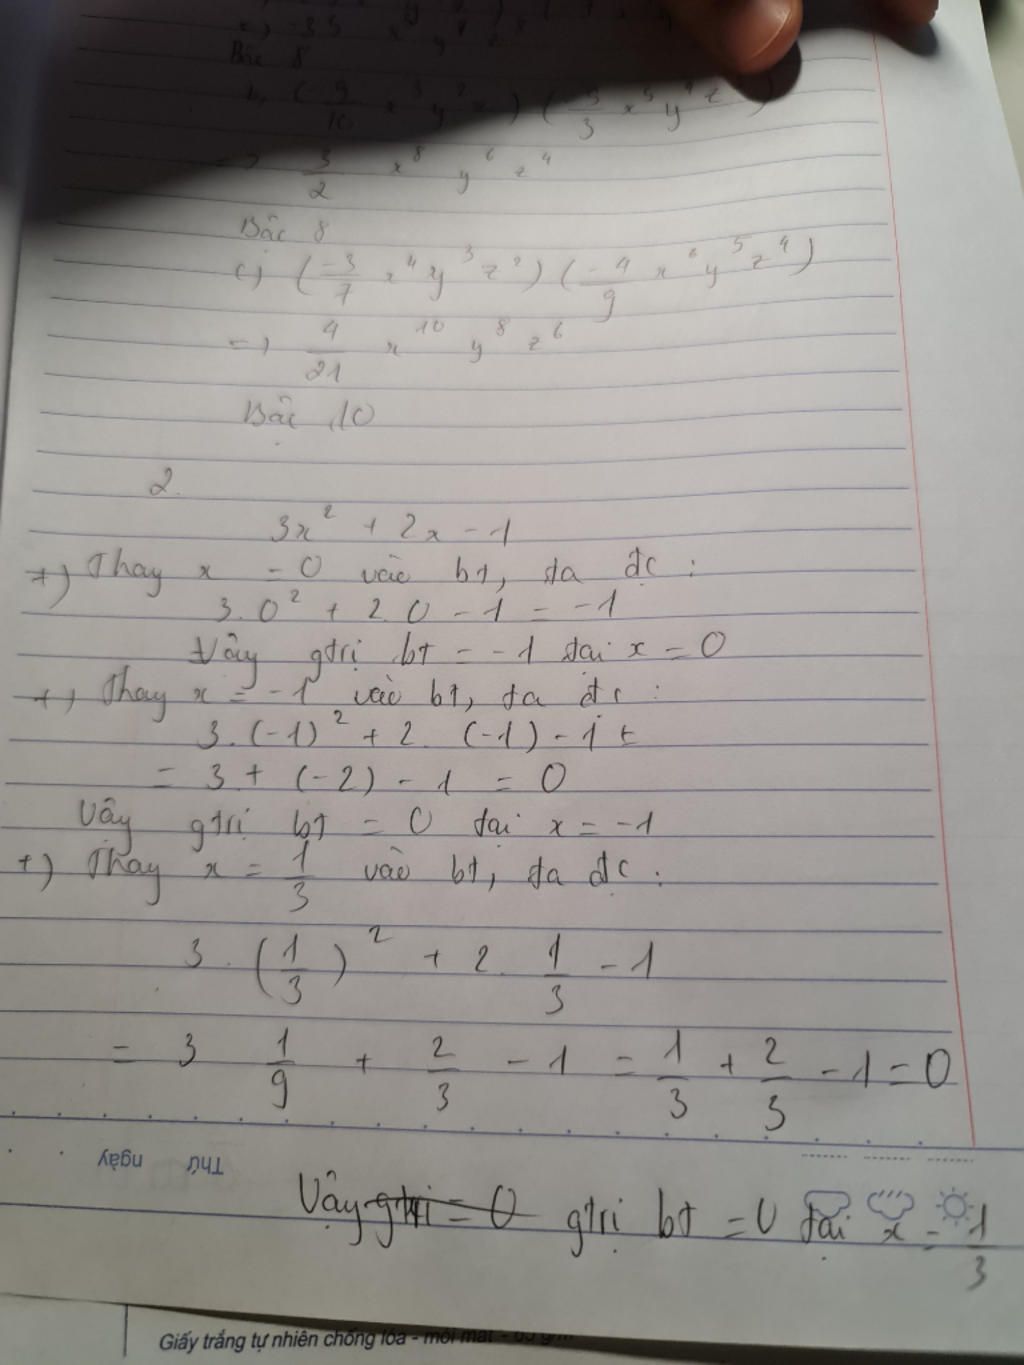 Bâc 8
=) 3/2 x^8 y^6 z^4
Bâc 8
c) (-3/7 x^4 y^3 z^2) (-4/9 x^6 y^5 z^4)
=) 4/21 x^10 y^8 z^6
Bậc 10
2.
3x^2 + 2x - 1
+) Thay x = 0 vào bt, ta đc :
3. 0^2 + 2. 0 - 1 = -1
Vây gtrị bt = -1 tại x = 0
+) Thay x = -1 vào bt, ta đc :
3. (-1)^2 + 2. (-1) - 1 =
= 3 + (-2) - 1 = 0
Vây gtrị bt = 0 tại x = -1
+) Thay x = 1/3 vào bt, ta đc :
3. (1/3)^2 + 2. 1/3 - 1
= 3 1/9 + 2/3 - 1 = 1/3 + 2/3 - 1 = 0
Thứ ngày
Vậy gtrị = 0 gtrị bt = 0 tại x = 1/3
Giấy trắng tự nhiên chống lóa - mỏi mắt